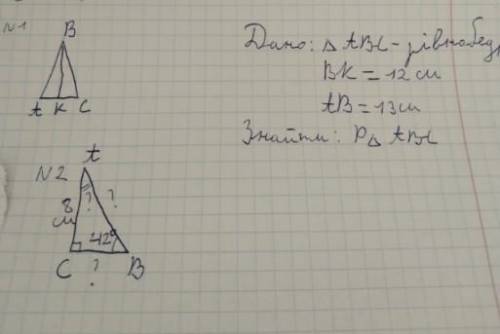 N1
B
A K C
Дано: △ ABC - рівнобедр
BK = 12 см
AB = 13 см
Знайти: P△ ABC
N2
A
? ?
8 см
42°
C ? B